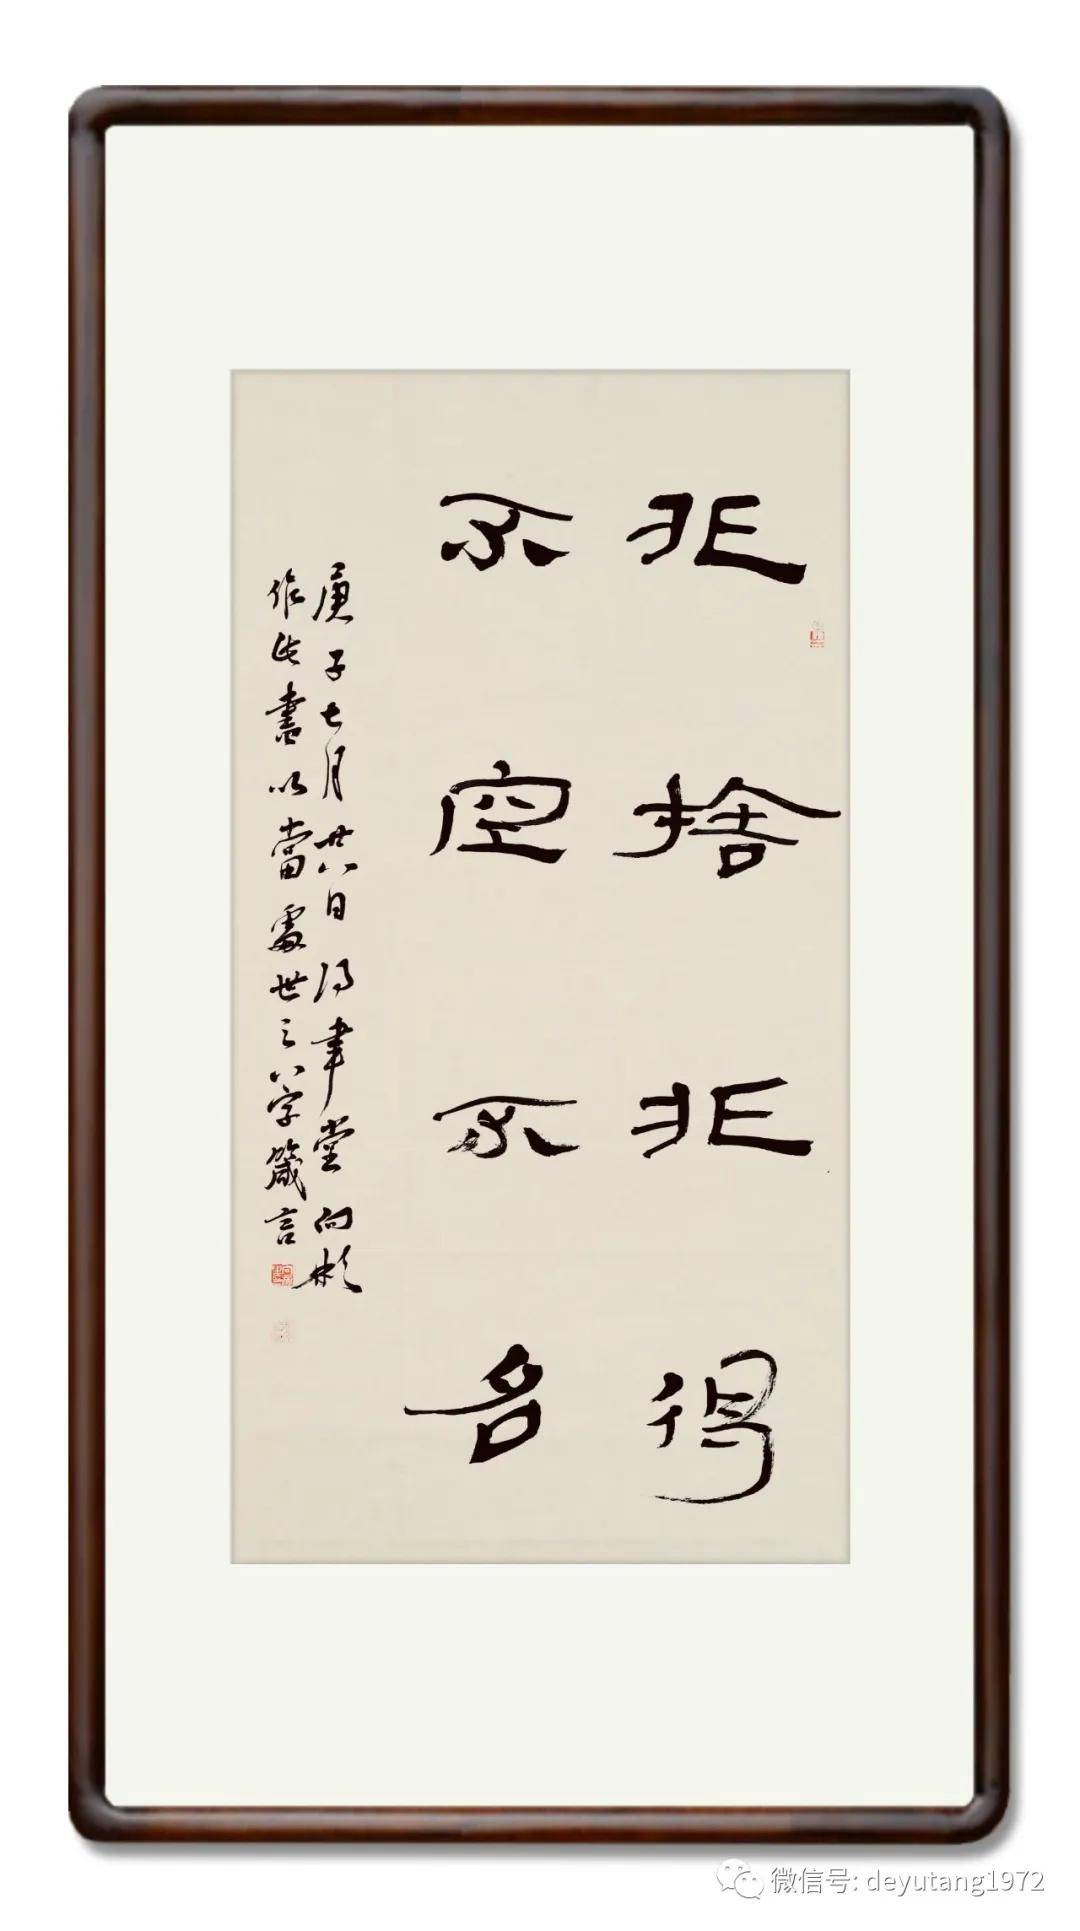 非捨非得
不空不名
庚子七月廿八日得聿堂向彬
作此書以當處世之八字箴言
微信号: deyutang1972